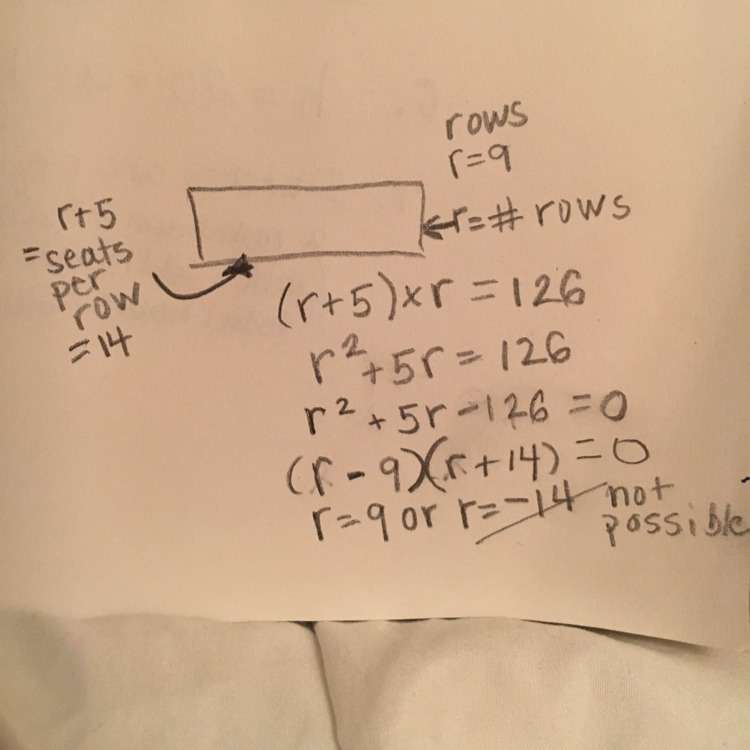 rows
r=9
r=# rows
r+5
=seats
per
row
=14
(r+5)×r=126
r²+5r=126
r²+5r-126=0
(r-9)(r+14)=0
r=9 or r=-14 not
possible